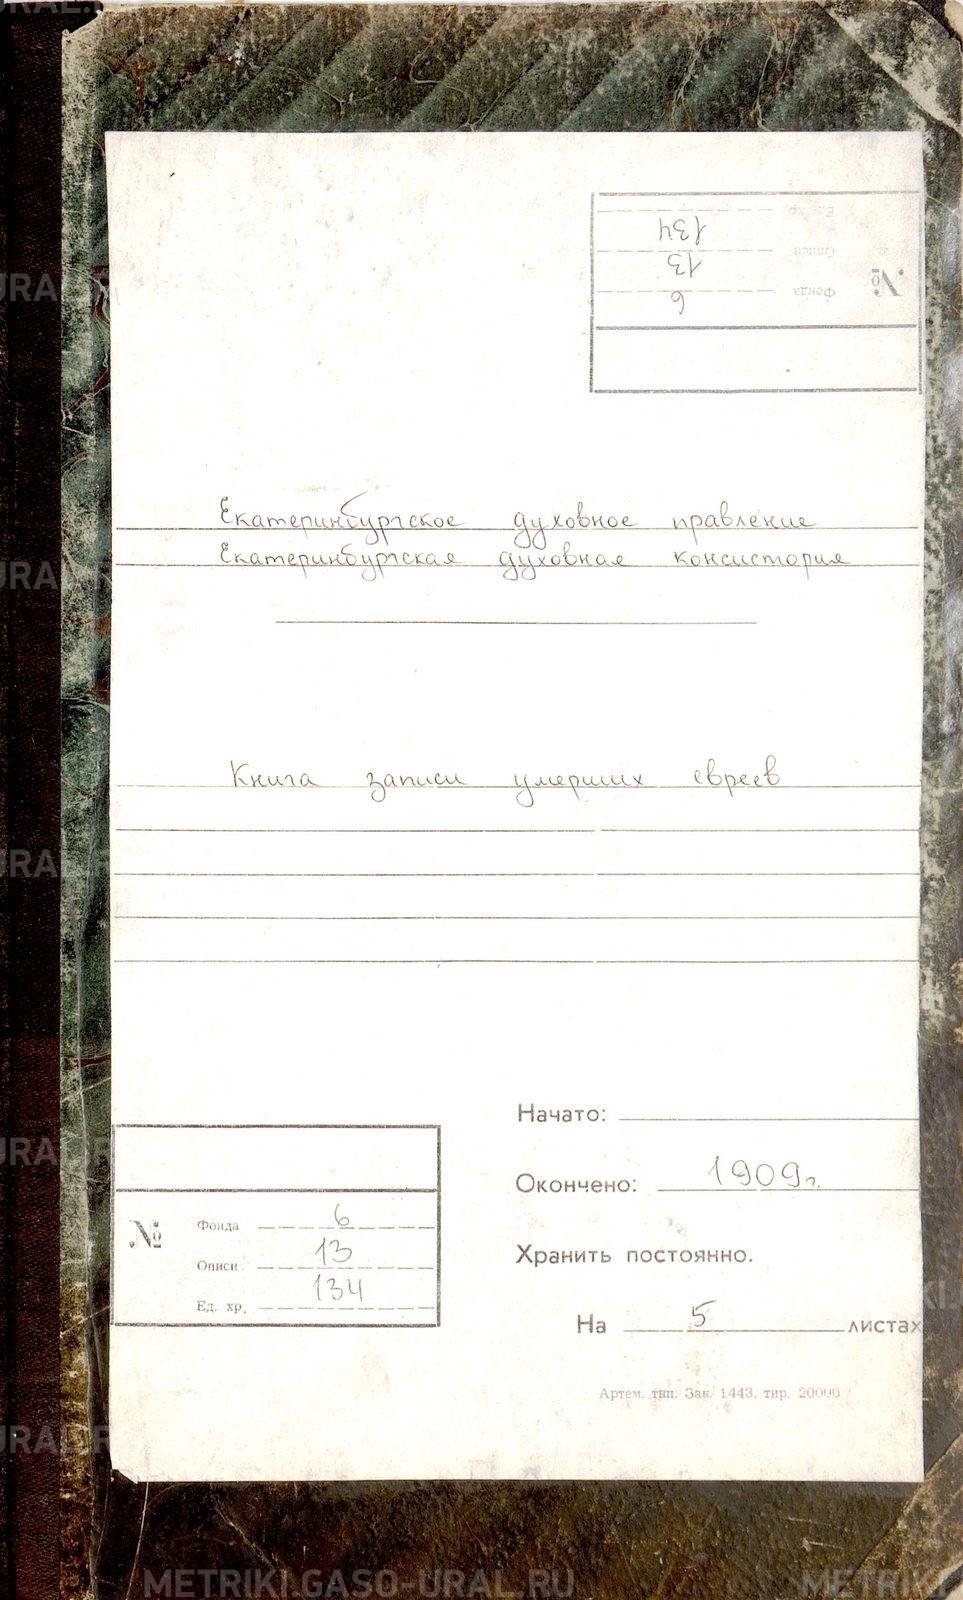 Ед. хр. 134
Описи 13
№
Фонда 6
Екатеринбургское духовное правление
Екатеринбургская духовная консистория
Книга записи умерших евреев
Начато:
Окончено: 1909г.
Хранить постоянно.
На 5 листах
№
Фонда 6
Описи 13
Ед. хр. 134
Артем. тип. Зак. 1443, тир. 20000
METRIKI.GASO-URAL.RU